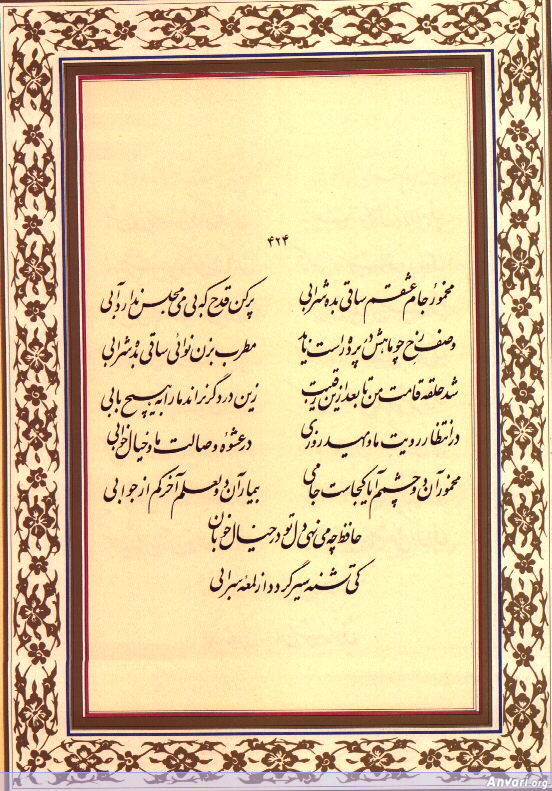 ۴۲۴
مخمور جام عشقم ساقی بده شرابی پر کن قدح که بی می مجلس ندارد آبی
وصف رخ چو ماهش در پرده راست ناید مطرب بزن نوائی ساقی بده شرابی
شد حلقه قامت من تا بعد ازین رقیبت زین در دگر نراند ما را بهیچ بابی
در انتظار رویت ما و امید روزی در عشوه وصالت ما و خیال خوابی
مخمور آن دو چشم آیا کجاست جامی بیمار آن دو لعلم آخر کم از جوابی
حافظ چه می نهی دل تو در خیال خوبان
کی تشنه سیر گردد از لمعه سرابی
Anvari.org